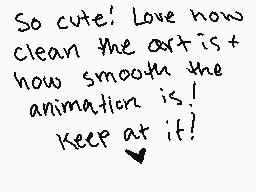 So cute! Love how
clean the art is +
how smooth the
animation is!
Keep at it!
♥